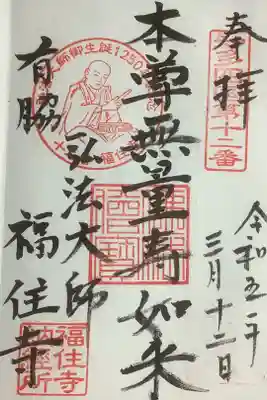 奉拝
知多四国第十二番
令和五年
三月十二日
本尊無量寿如来
弘法大師
有脇
福住寺
大師御生誕1250
福住寺
納経所